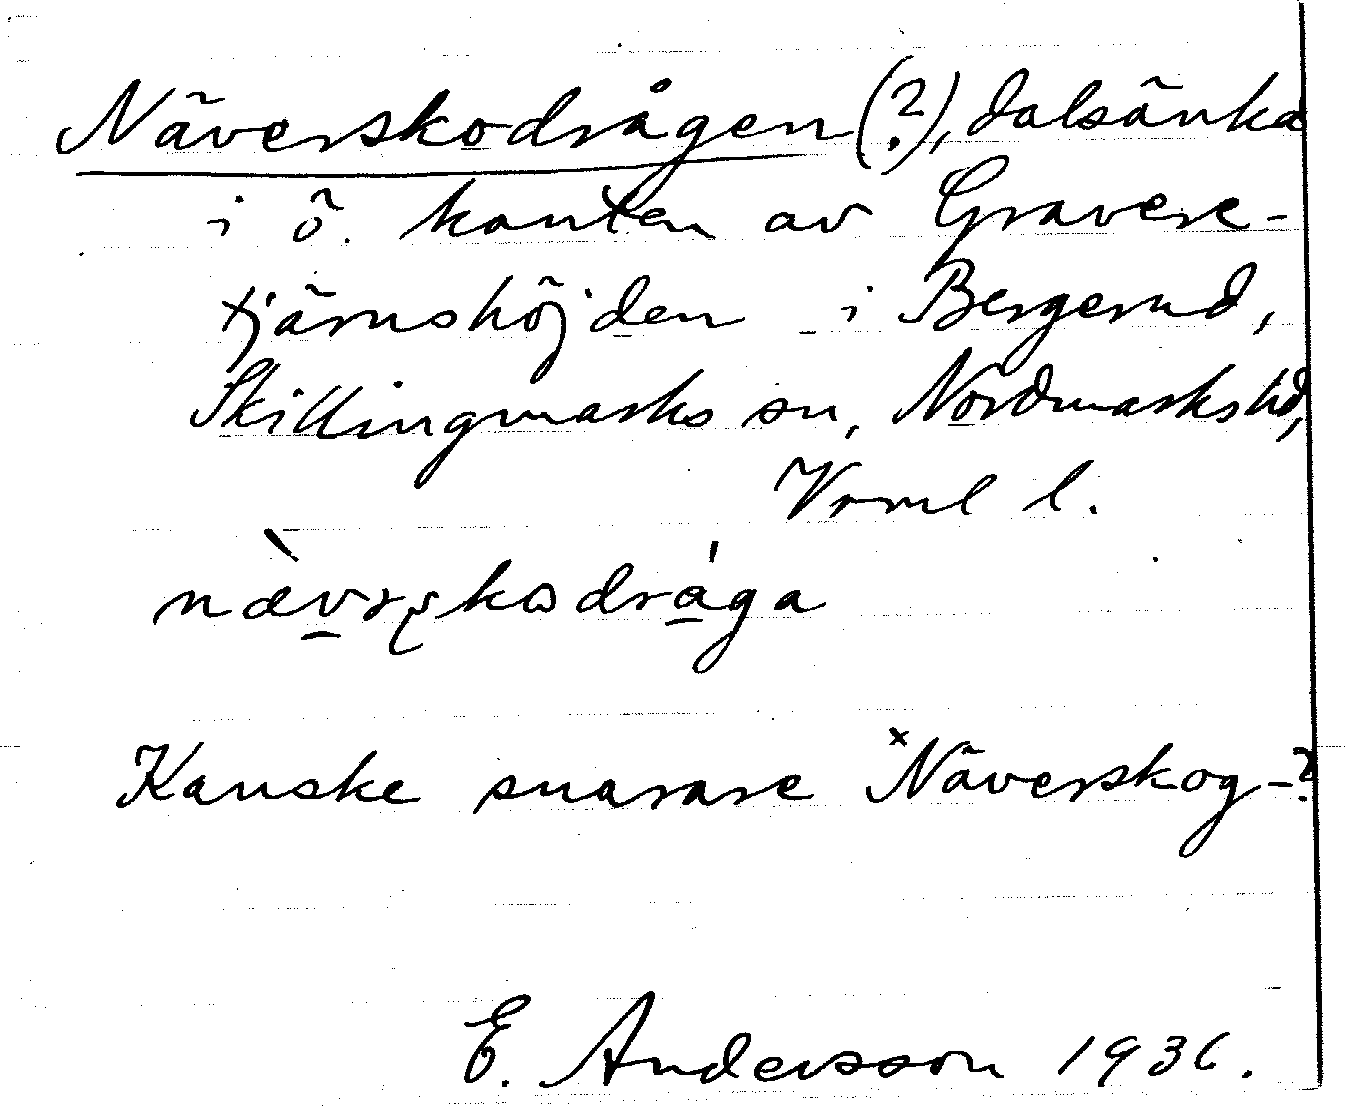 Näverskodrågen (?), dalsänka
i ö. kanten av Gravere-
tjärnshöjden i Bergerud,
Skillingmarks sn, Nordmarks hd,
Vrml l.
Kanske snarare ˣNäverskog-?
E. Andersson 1936.